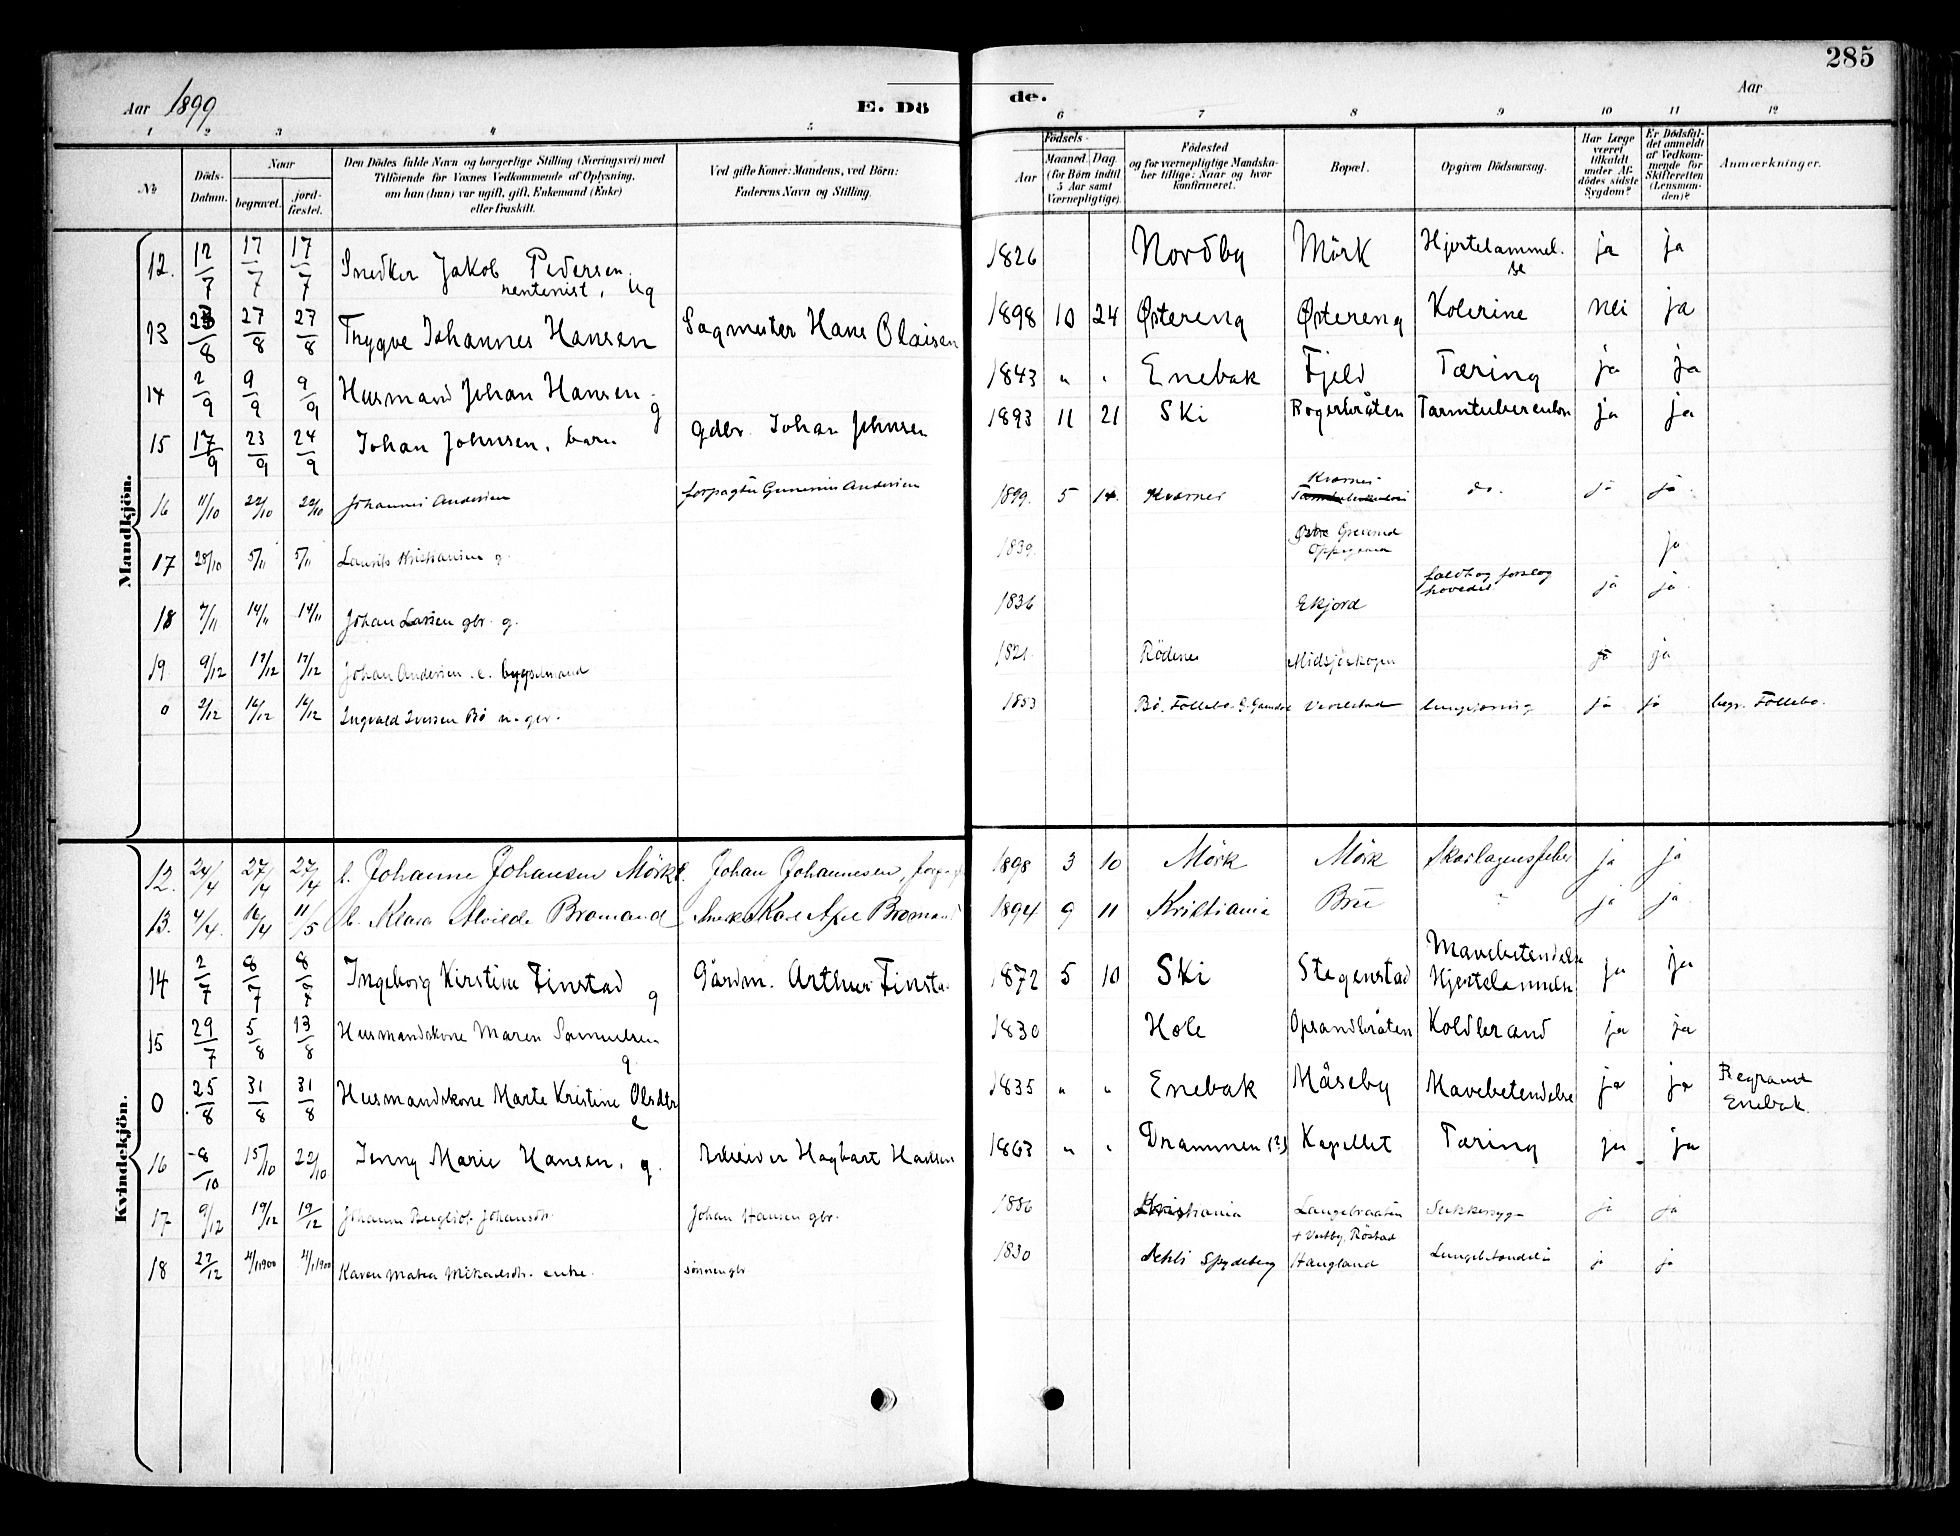 285
Aar 1899 E. Dö de. Aar
1 2 3 4 5 6 7 8 9 10 11 12
№
Döds-Datum.
Naar
begravet.
jord-fæstet.
Den Dödes fulde Navn og borgerlige Stilling (Næringsvei) med
Tilföiende for Voxnes Vedkommende af Oplysning,
om han (hun) var ugift, gift, Enkemand (Enke)
eller fraskilt.
Ved gifte Koner: Mandens, ved Börn:
Faderens Navn og Stilling.
Födsels-
Aar
Maaned. Dag.
(for Börn indtil
5 Aar samt
Værnepligtige).
Födested
og for værnepligtige Mandska-
ber tillige: Naar og hvor
konfirmeret.
Bopæl.
Opgiven Dödsaarsag.
Har Læge
været
tilkaldt
under Af-
dödes sidste
Sygdom?
Er Dödsfal-
det anmeldt
af Vedkom-
mende for
Skifteretten
(Lensman-
den)?
Anmærkninger.
Mandkjön.
12. 12/7 17/7 17/7 Snedker Jakob Pedersen, rentenist, ug 1826 Nordby Mörk Hjertelammelse ja ja
13 23/8 27/8 27/8 Trygve Johannes Hansen Sagmester Hans Olaisen 1898 10 24 Østereng Østereng Kolerine nei ja
14 2/9 9/9 9/9 Husmand Johan Hansen. g 1843 " " Enebak Fjeld Tæring ja ja
15 17/9 23/9 24/9 Johan Johnsen, barn gdbr. Johan Johnsen 1893 11 21 Ski Rogerbråten Tarmtuberculose ja ja
16 11/10 22/10 22/10 Johannes Andersen forpagter Gunerius Andersen 1899. 5 14. Kværner Kværner do. ja ja.
17 28/10 5/11 5/11 Laurits Kristiansen g. 1839. Østre Greverud Oppegaard ja
18 7/11 14/11 14/11 Johan Larsen gbr. g. 1836 Ekjord faldt og forslog hovedet ja ja.
19. 9/12 17/12 17/12 Johan Andersen. e. bygselmand 1821. Rödenes Midsjöskogen ja ja
0 2/12 16/12 16/12 Ingvald Iversen Bö u. gbr. 1853 Bö. Follebo. G. Gausdal Vevelstad ja ja begr. Follebo.
Kvindekjön.
12. 24/4 27/4 27/4 b. Johanne Johansen Mörk Johan Johannesen, 1898 3 10 Mörk Mörk Skarlagensfeber ja ja
13. 4/4. 16/4 11/5 b. Klara Alvilde Bromand Karl Axel Bromand 1894 9 11 Kristiania Bru " ja ja.
14 2/7 8/7 8/7 Ingeborg Kirstine Finstad g Gårdm. Arthur Finsta. 1872 5 10 Ski Stegenstad Mavebetendelse Hjertelammelse ja ja
15 29/7 5/8 13/8 Husmandskone Maren Samuelsen g. 1830 Hole Opsandbråten Koldbrand ja ja
0 25/8 31/8 31/8 Husmandskone Marte Kristine Olsdtr e 1835 " " Enebak Måseby Mavebetendelse ja ja Begravet Enebak.
16 8/10 15/10 22/10 Jenny Marie Hansen. g. Arbeider Hagbart Hansen 1863 " " Drammen (?) Kapellet Tæring ja ja
17 9/12 19/12 19/12 Johanne Bergliot Johansdtr. Johan Hansen gbr. 1886 Kristiania Langebraaten Sukkersyge ja ja
+ Vestby, Röstad
18 27/12 4/1 1900 4/1 1900 Karen Matea Mikaelsdtr. enke. 1830 Spydeberg Haugland Lungebetendelse ja ja